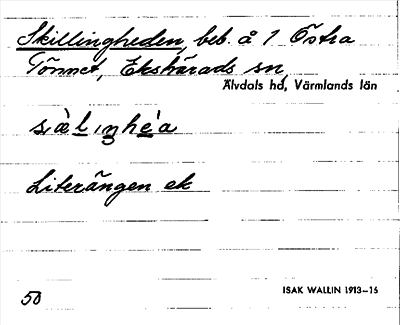 Skillingheden, beb. å 1 Östra
Tönnet, Ekshärads sn,
Älvdals hd, Värmlands län
Literängen ek
ISAK WALLIN 1913–15
50